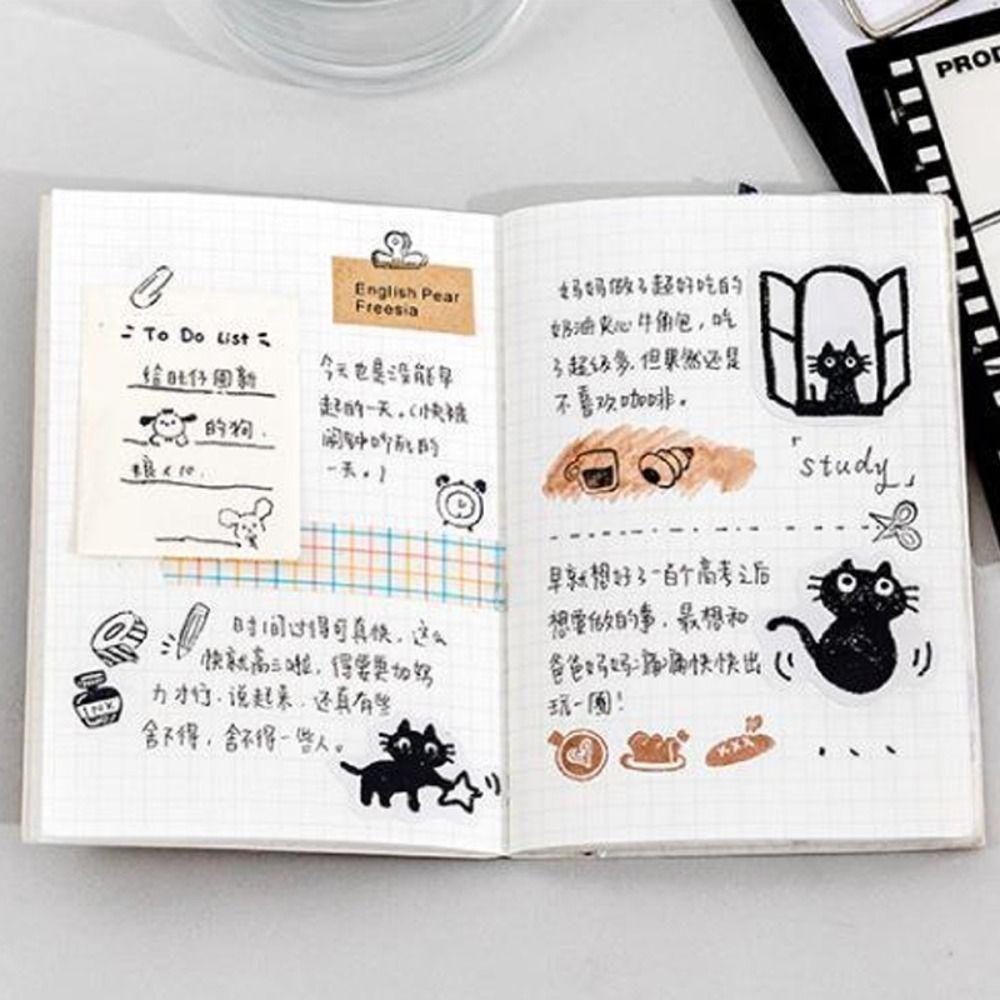 To Do List
给旺仔画新
的狗.
粮 x 10.
English Pear
Freesia
今天也是没能早
起的一天。(快被
闹钟吵死的
一天。)
时间过得可真快,这么
快就高三啦,得要更加努
力才行.说起来,还真有些
舍不得,舍不得一些人。
INK
妈妈做了超好吃的
奶油夹心牛角包,吃
了超级多,但果然还是
不喜欢咖啡。
「study」
早就想好了一百个高考之后
想要做的事,最想和
爸爸妈妈痛痛快快出
玩一圈!
....
PROD